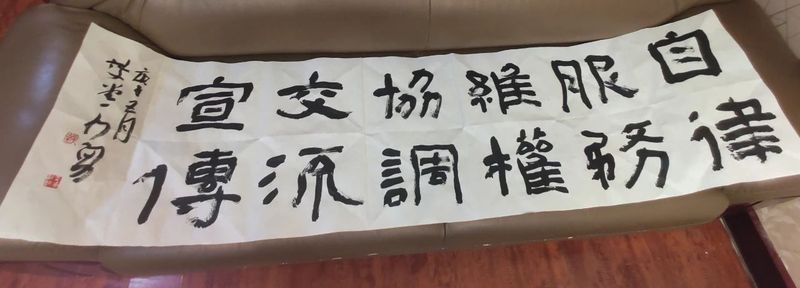 自律
服務
維權
協調
交流
宣傳
庚子五月